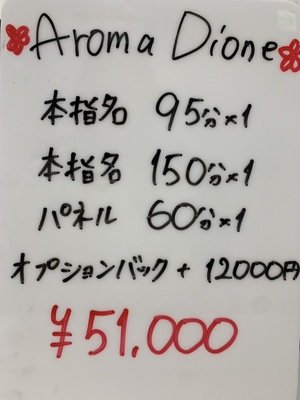 Aroma Dione
本指名 95分×1
本指名 150分×1
パネル 60分×1
オプションバック + 12000円
¥51.000